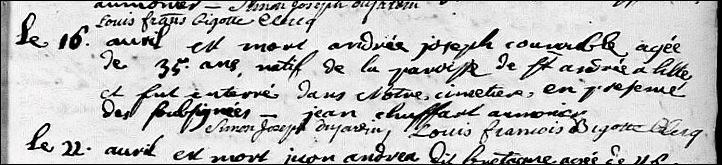 aumonier — Simon Joseph dujardin
Louis frans Bigotte Clercq
Le 16. auril est mort andrée joseph agée
de 35. ans, natif de la paroisse de st andrée a lille
et fut enterré dans notre cimetiere, en presence
des soubsignées — jean chuffart aumonier
Simon Joseph dujardin, Louis francois Bigotte Clercq
Le 22. auril est mort jean andrea dit bretagne agée de